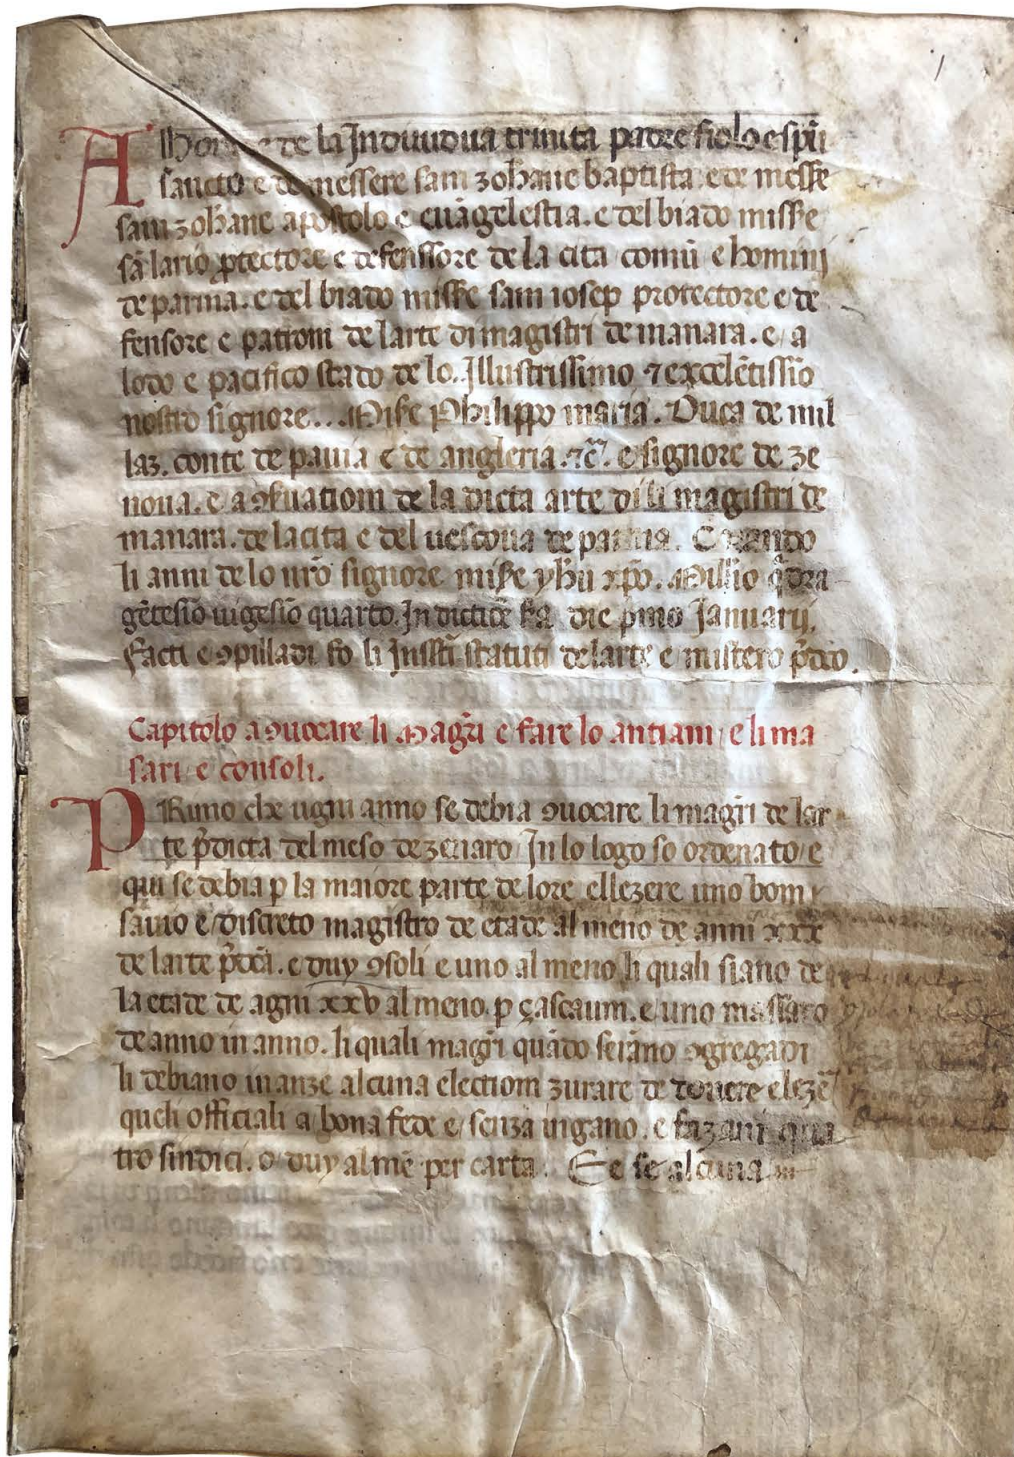 A Honore de la Indiuidua trinita padre fiolo e spũ
sancto e de messere sam zohane baptista e de messẽ
sam zohane apostolo e euãgelestia. e del biado misẽ
sã lario ꝓtectore e defenssore de la cita comũ e homini
de parma. e del biado missẽ sam iosep protectore e de
fensore e patrom de larte di magistri de manara. e a
lodo e pacifico stado de lo.. Jllustrissimo ⁊ excelẽtissĩo
nostro signore... Misẽ Philippo maria. Duca de mil
laz. conte de pauia e de angleria. ⁊c̃. e signore de ze
noua. e a ꝯseruatiom de la dicta arte di li magistri de
manara. de la cita e del uescoua de parma. Corando
li anni de lo nr̃o signore misẽ yhũ xp̃o. Millĩo q̃dra
gẽtesĩo uigesĩo quarto. Indictiõe die p̃mo Januarij.
Facti e ꝯpilladi fo li Jnfscr̃i statuti de larte e mistero p̃dco.
Capitolo a ꝯuocare li Magr̃i e fare lo antiani e li ma
sari e consoli.
PRimo che ugni anno se debia ꝯuocare li magr̃i de lar
te p̃dicta del meso de zenaro Jn lo logo so ordenato e
qui se debia p la maiore parte de lore ellezere uno bom
sauio e discreto magistro de etade al meno de anni xxx
de larte p̃dc̃a. e duy ꝯsoli e uno al meno li quali siano de
la etade de agni xxv al meno. p çascaum. e uno massaro
de anno in anno. li quali magr̃i quãdo serãno ꝯgregadi
li debiano inanze alcuna electiom zurare de tenere elezẽ
queli officiali a bona fede e senza ingano. e fazani qua
tro sindici. o duy al mẽ per carta. E se alcuna